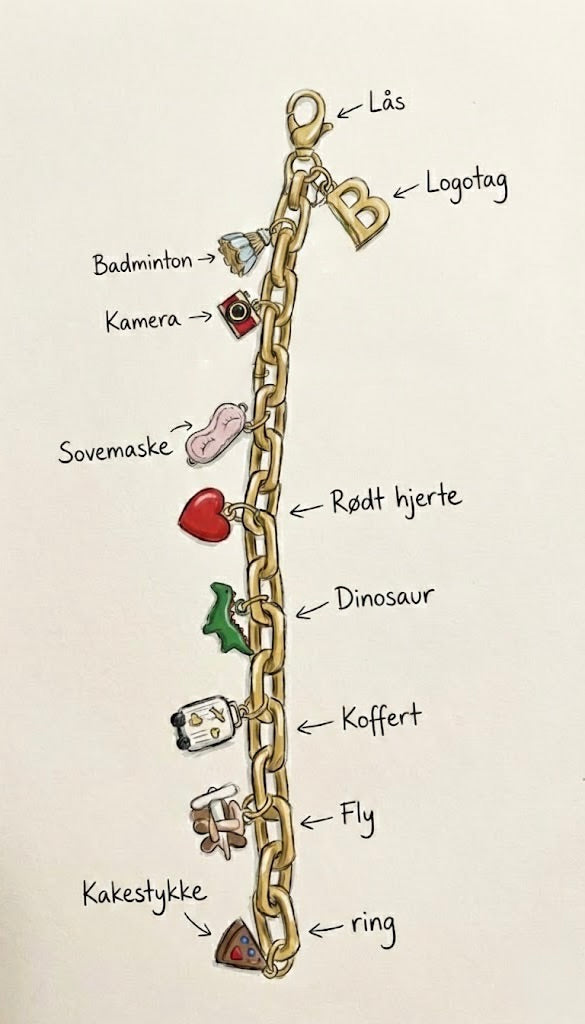 Lås
Logotag
B
Badminton
Kamera
Sovemaske
Rødt hjerte
Dinosaur
Koffert
Fly
Kakestykke
ring